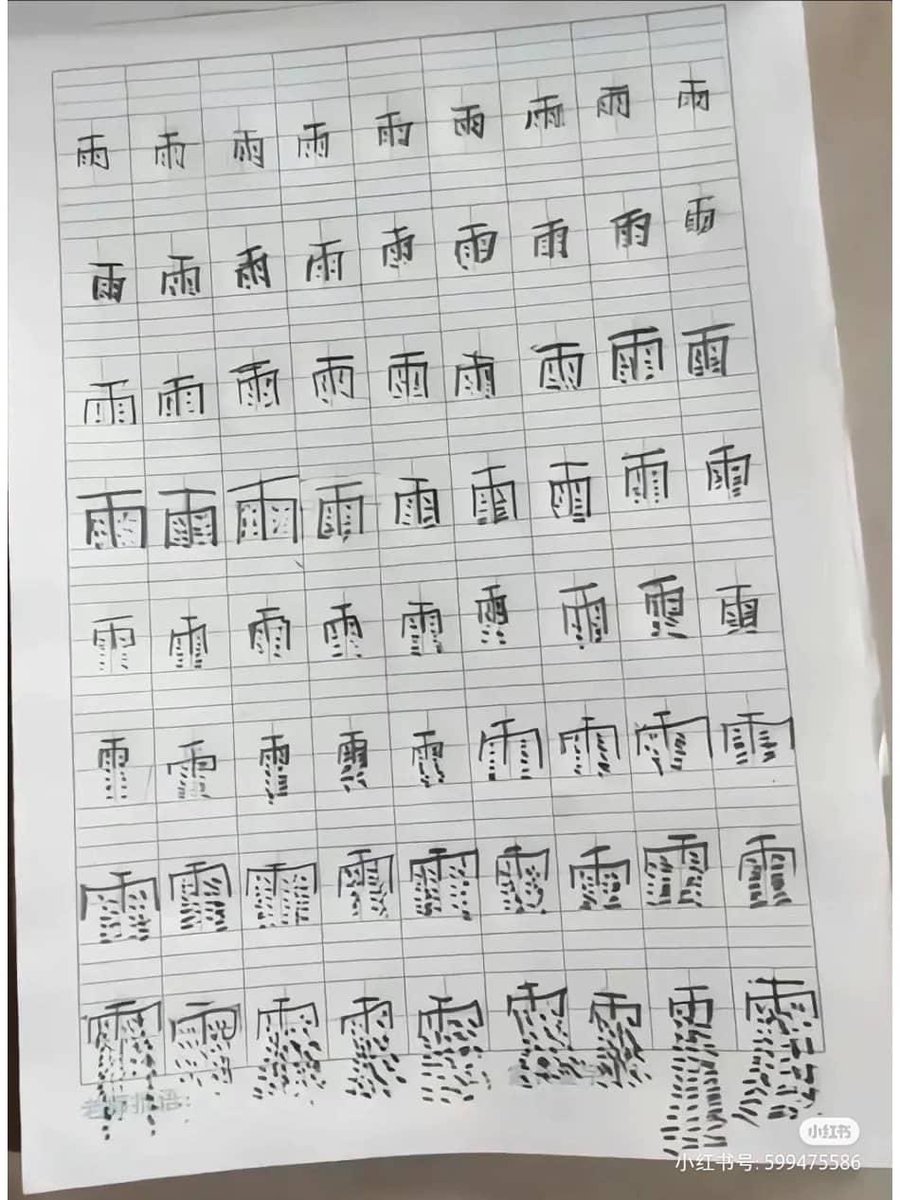 雨 雨 雨 雨 雨 雨 雨 雨 雨
雨 雨 雨 雨 雨 雨 雨 雨 雨
雨 雨 雨 雨 雨 雨 雨 雨 雨
雨 雨 雨 雨 雨 雨 雨 雨 雨
雨 雨 雨 雨 雨 雨 雨 雨 雨
雨 雨 雨 雨 雨 雨 雨 雨 雨
雨 雨 雨 雨 雨 雨 雨 雨 雨
雨 雨 雨 雨 雨 雨 雨 雨 雨
老师批语:
小红书
小红书号: 599475586